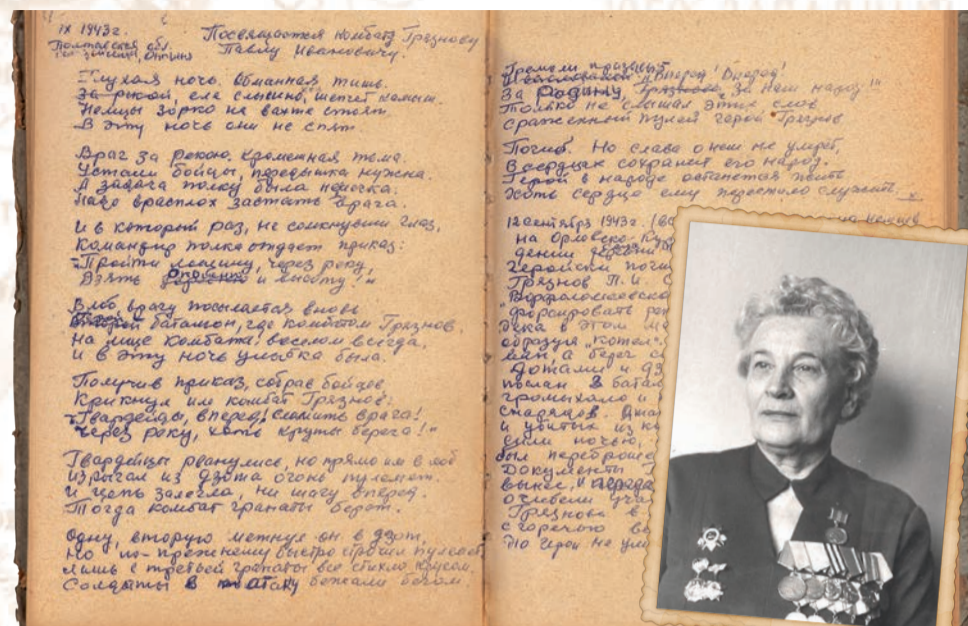 IX 1943г.
Полтавская обл.
Посвящается комбату Грязнову
Павлу Ивановичу.
Глухая ночь. Обманная тишь.
За рекой, еле слышно, шепчет камыш.
Немцы зорко на вахте стоят
В эту ночь они не спят.
Враг за рекою. Кромешная тьма.
Устали бойцы, передышка нужна.
А задача полку была нелегка:
Надо врасплох застать врага.
И в который раз, не сомкнувши глаз,
Командир полка отдает приказ:
"Пройти лощину, через реку,
Взять и высоту!"
В лоб врагу посылается вновь
Второй баталион, где комбатом Грязнов.
На лице комбата, веселом всегда,
И в эту ночь улыбка была.
Получив приказ, собрав бойцов,
Крикнул им комбат Грязнов:
"Гвардейцы, вперед! Сломить врага!
Через реку, хоть круты берега!"
Гвардейцы рванулись, но прямо им в лоб
Изрыгал из дзота огонь пулемет.
И цепь залегла, ни шагу вперед.
Тогда комбат гранаты берет.
Одну, вторую метнул он в дзот,
Но по-прежнему быстро строчил пулемет
Лишь с третьей гранаты все стихло кругом.
Солдаты в атаку бежали бегом.
Гремели призывы
"Вперед! Вперед!
За Родину, За наш народ!"
Только не слышал этих слов
Сраженный пулей герой Грязнов
Погиб. Но слава о нем не умрет,
В сердцах сохранит его народ.
Герой в народе останется жить
Хоть сердце ему перестало служить.
12 сентября 1943г.
на Орловско-Кур
дении деревни
Геройски поги
Грязнов П.И.
форсировать ре
дека в этом ме
образуя "котел
а берег
Дотами и дз
послан 2 батал
громыхало и
снарядов.
и убитых из
ночью,
был переброше
Документы
вынес,
Грязнова в
с горечью
Но герои не уми